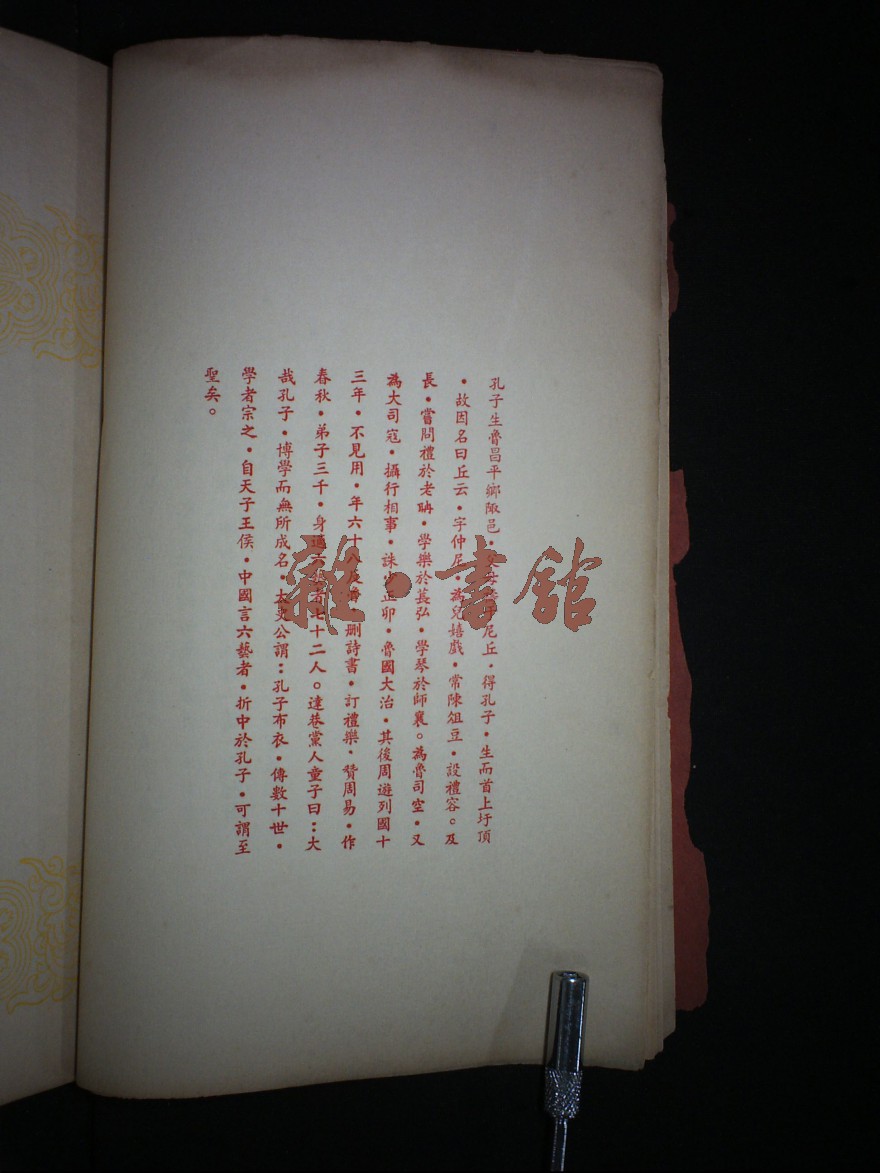 孔子生魯昌平鄉陬邑・父母禱於尼丘・得孔子・生而首上圩頂
・故因名曰丘云・字仲尼・為兒嬉戲・常陳俎豆・設禮容。及
長・嘗問禮於老聃・學樂於萇弘・學琴於師襄。為魯司空・又
為大司寇・攝行相事・誅少正卯・魯國大治・其後周遊列國十
三年・不見用・年六十八反魯・刪詩書・訂禮樂・贊周易・作
春秋・弟子三千・身通六藝者七十二人。達巷黨人童子曰：大
哉孔子・博學而無所成名・太史公謂：孔子布衣・傳數十世・
學者宗之・自天子王侯・中國言六藝者・折中於孔子・可謂至
聖矣。
雜・書館